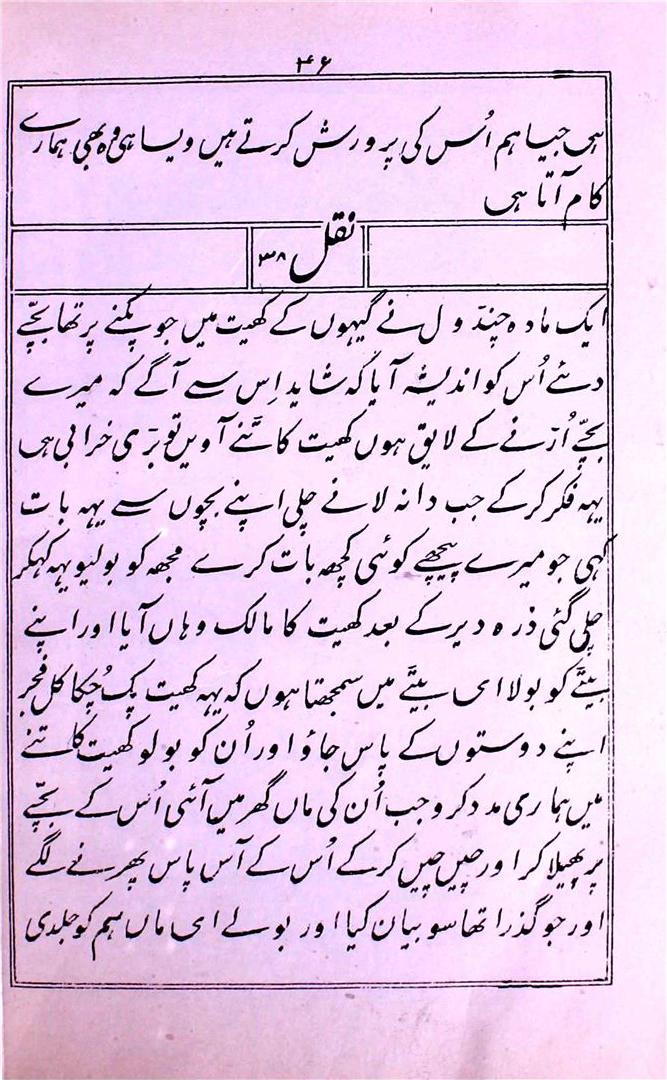 ۴۶
ہی جیسا ہم اُس کی پرورش کرتے ہیں ویسا ہی وہ بھی ہمارے
کام آتا ہی
نقل ۳۸
ایک مادہ چنڈول نے گیہوں کے کھیت میں جو پکنے پر تھا بچّے
دئے اُس کو اندیشہ آیا کہ شاید اِس سے آگے کہ میرے
بچّے اُڑنے کے لایق ہوں کھیت کاٹنے آویں تو بڑی خرابی ہی
یہہ فکر کرکے جب دانہ لانے چلی اپنے بچوں سے یہہ بات
کہی جو میرے پیچھے کوئی کچھ بات کرے مجھ کو بولیو یہہ کہکر
چلی گئی ذرہ دیر کے بعد کھیت کا مالک وہاں آیا اور اپنے
بیٹے کو بولا ای بیٹے میں سمجھتا ہوں کہ یہہ کھیت پک چُکا کل فجر
اپنے دوستوں کے پاس جاؤ اور اُن کو بولو کھیت کاٹنے
میں ہماری مدد کرو جب اُن کی ماں گھر میں آئی اُس کے بچّے
پر پھیلا کر اور چیں چیں کرکے اُس کے آس پاس پھرنے لگے
اور جو گذرا تھا سو بیان کیا اور بولے ای ماں ہم کو جلدی